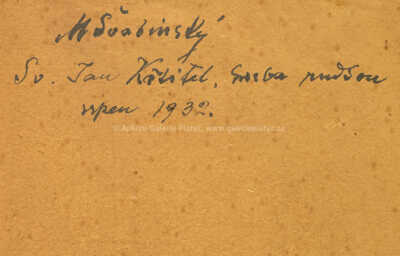 M Švabinský
Sv. Jan Křtitel, kresba rudkou
srpen 1932.
© Aukční Galerie Platýř, www.galerieplatyz.cz